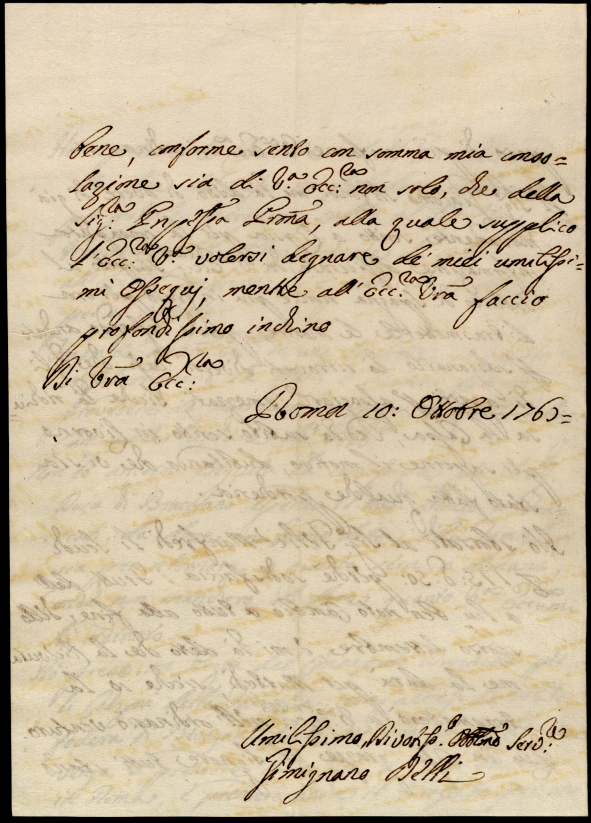 bene, conforme sento con somma mia conso=
lazione sia di V.ª Ecc.za non solo, che della
Sig.ra Pnp̃ssa Prõna, alla quale supplico
l'Ecc.za V.ª volersi degnare de' miei umilissi=
mi Ossequj, mentre all'Ecc.za Vrã faccio
profondissimo inchino
Di Vrã Ecc:za
Roma 10: Ottobre 1765=
Umilissimo, Divotiss.o Serv.re
Gimignano Belli